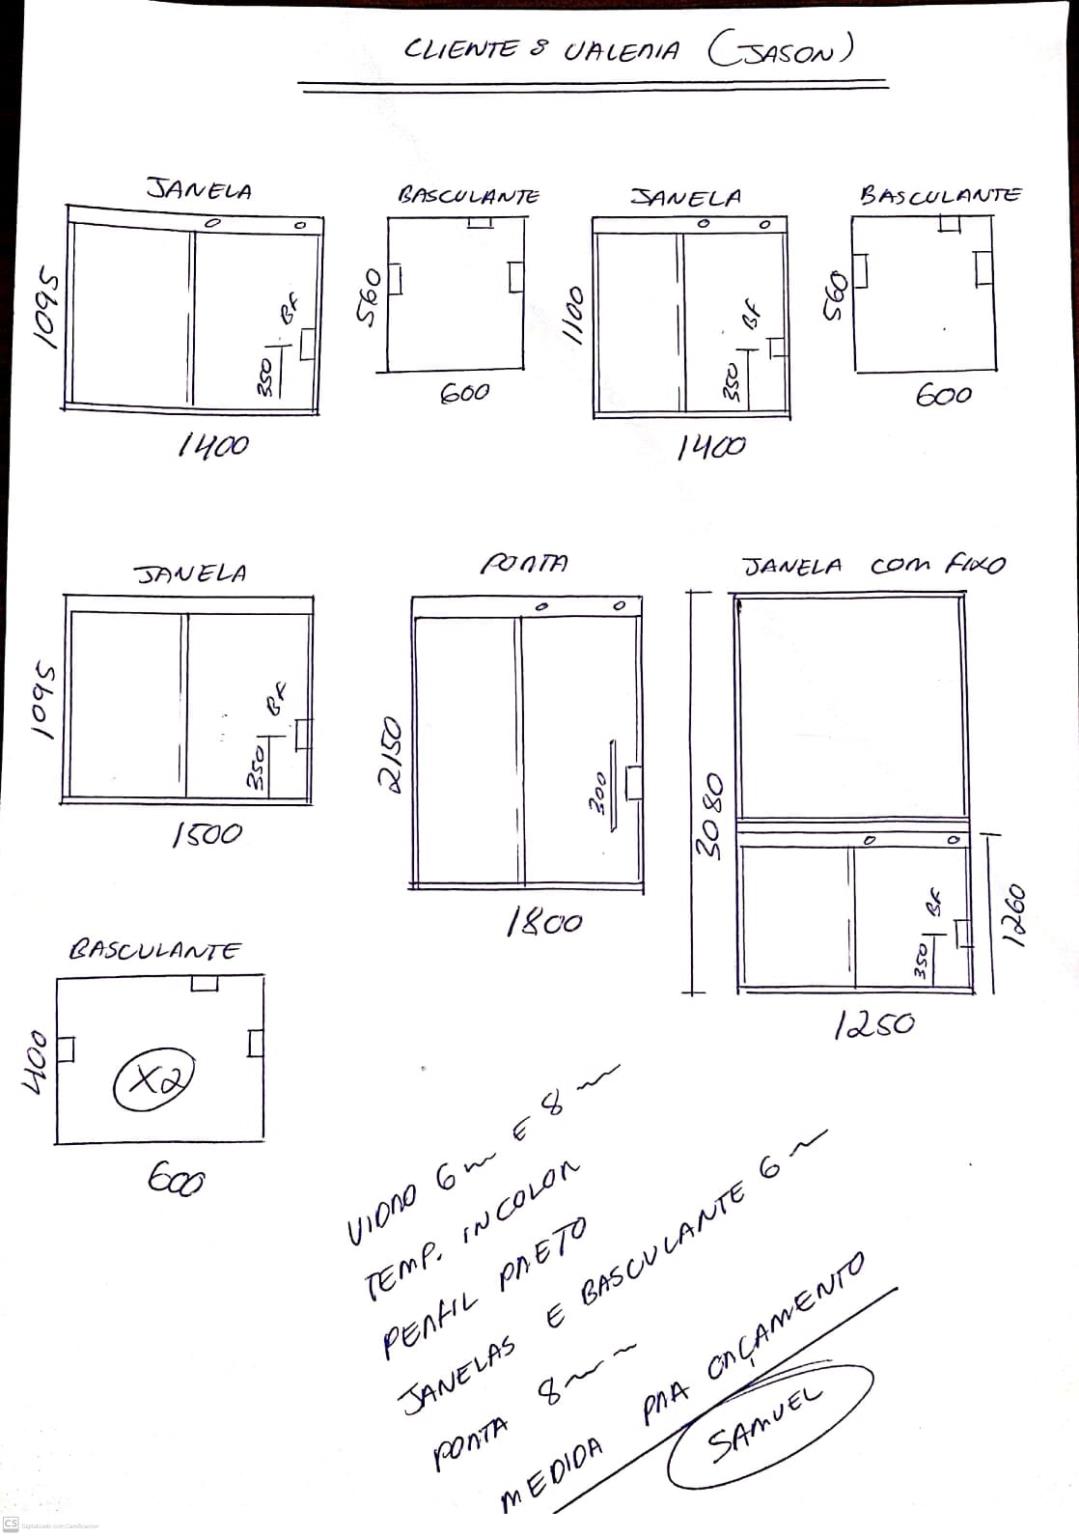 CLIENTE: VALERIA (JASON)
JANELA
BASCULANTE
JANELA
BASCULANTE
1095
BF
350
1400
560
600
1100
BF
350
1400
560
600
JANELA
PORTA
JANELA COM FIXO
1095
BF
350
1500
2150
300
1800
3080
BF
350
1260
1250
BASCULANTE
400
X2
600
VIDRO 6mm E 8mm
TEMP. INCOLOR
PERFIL PRETO
JANELAS E BASCULANTE 6m
PORTA 8mm
MEDIDA PRA ORÇAMENTO
SAMUEL
CS Digitalizado com CamScanner